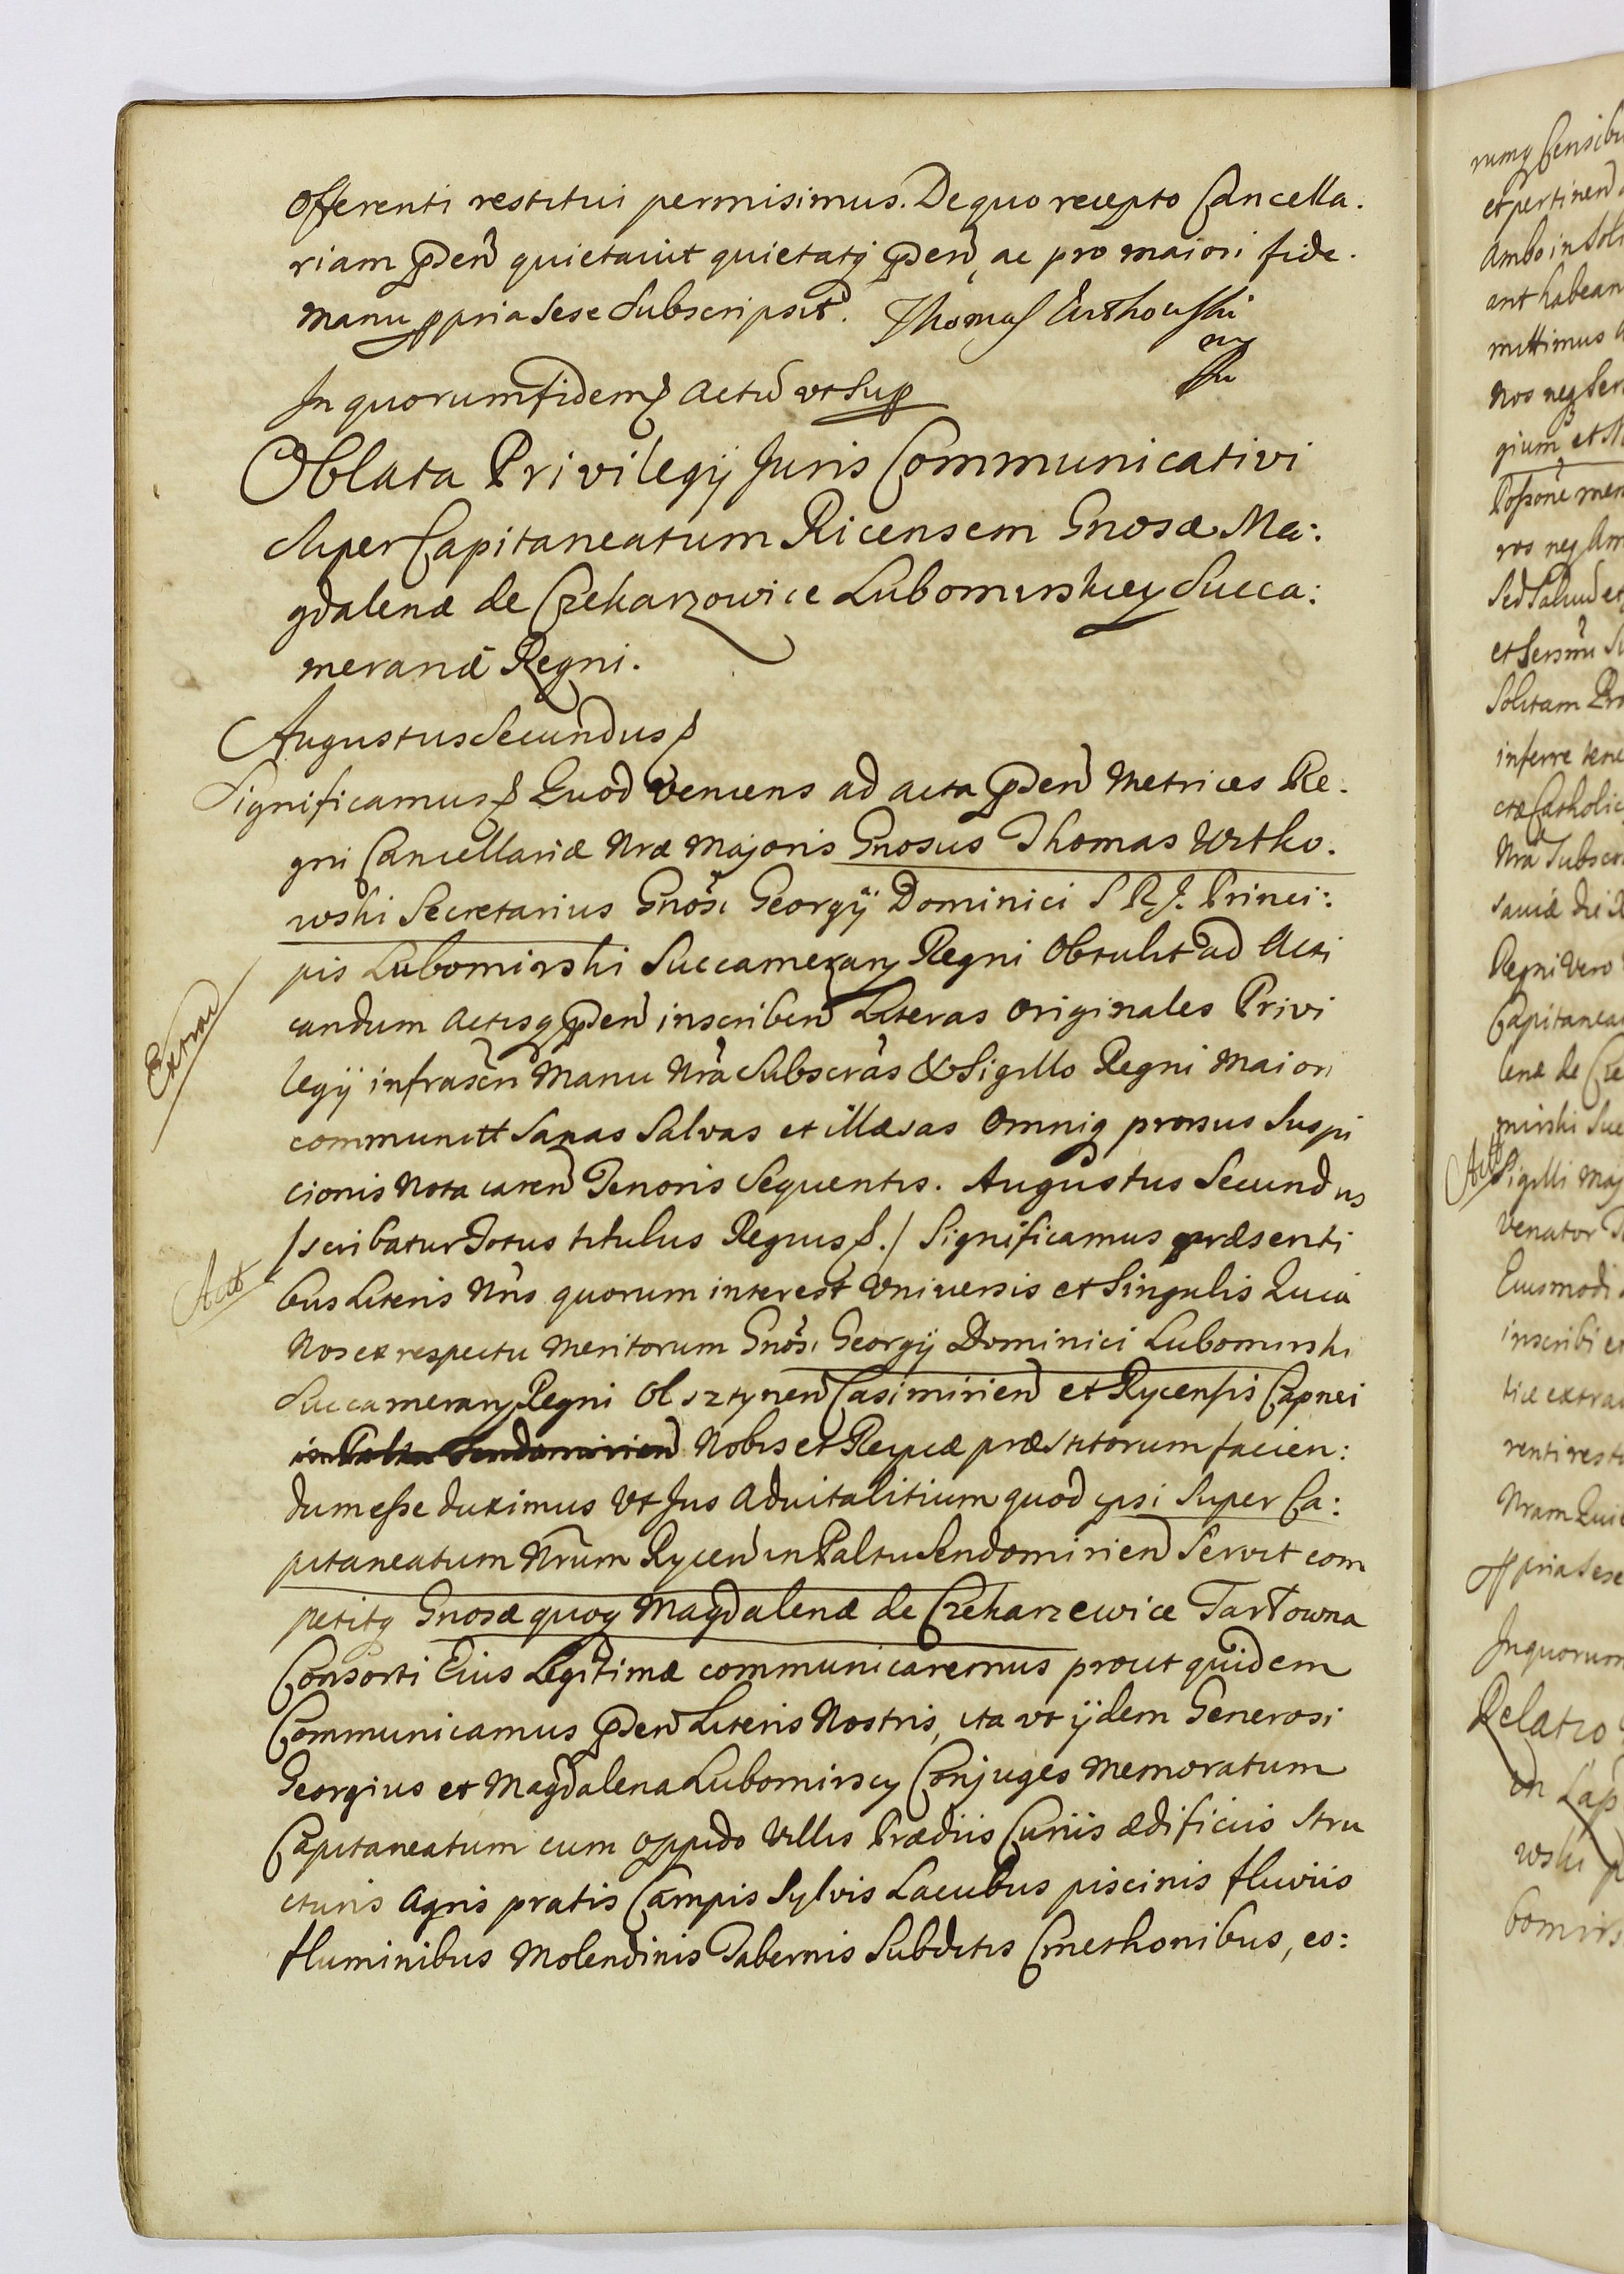 Offerenti restitui permisimus. De quo recepto Cancella.
riam pden quietavit quietatq pden, ac pro maiori fide.
Manu ppria sese Subscripsit. Thomas
In quorum fidem Actũ vt Sup
Oblata Privilegÿ Juris Communicativi
Super Capitaneatum Ricensem Gnosæ Ma:
gdalenæ de Czekarzowice Lubomirskiey Succa:
meranæ Regni.
Augustus Secundus
Significamus Quod veniens ad acta pden Metrices Re.
gni Cancellariæ Nræ Majoris Gnosus Thomas Urtko.
wski Secretarius Gnosi Georgÿ Dominici S R J. Princi:
pis Lubomirski Succamerarÿ Regni Obtulit ad Acti
candum Actisq pden inscriben Literas Originales Privi
legÿ infrascri Manu Nra Subscras & Sigillo Regni Maiori
communitt Sanas Salvas et illæsas Omniq prorsus Suspi
cionis Nota caren Tenoris Sequentis. Augustus Secundus
/scribatur Totus titulus Regius./ Significamus præsenti
bus Literis Nris quorum interest Universis et Singulis Quia
Nos ex respectu Meritorum Gnosi Georgÿ Dominici Lubomirski
Succamerarÿ Regni Olsztynen Casimirien et Rycensis Capnei
in Paltu Sendomirien Nobis et Reipcæ præstitorum facien:
dum esse duximus Ut Jus Advitalitium quod ipsi Super Ca:
pitaneatum Nrum Rycen in Paltu Sendomirien Servit com
petitq Gnosæ quoq Magdalenæ de Czekarzewice Tarłowna
Consorti Eius Legitimæ communicaremus prout quidem
Communicamus pden Literis Nostris, ita vt ÿdem Generosi
Georgius et Magdalena Lubomirscy Conjuges Memoratum
Capitaneatum cum Oppido Villis Prædiis Curiis ædificiis Stru
cturis Agris pratis Campis Sylvis Lacubus piscinis fluviis
fluminibus Molendinis Tabernis Subditis Cmethonibus, eo:
Act
rumq Censibu
et pertinen
Ambo in Soli
ant habean
mittimus
Nos neq Ser
gium et
ros neq
Sed Salvu et
Solitam Pro
inferre
Nra Subscr
Regni Vero
Capitanea
lenæ de Cze
mirski Suc
Act
Sigilli Maj
Venator
Eiusmodi
inscribi et
renti resti
Nram Qui
ppria Sese
In quorum
Relatio
in Cap
wski
bomirs